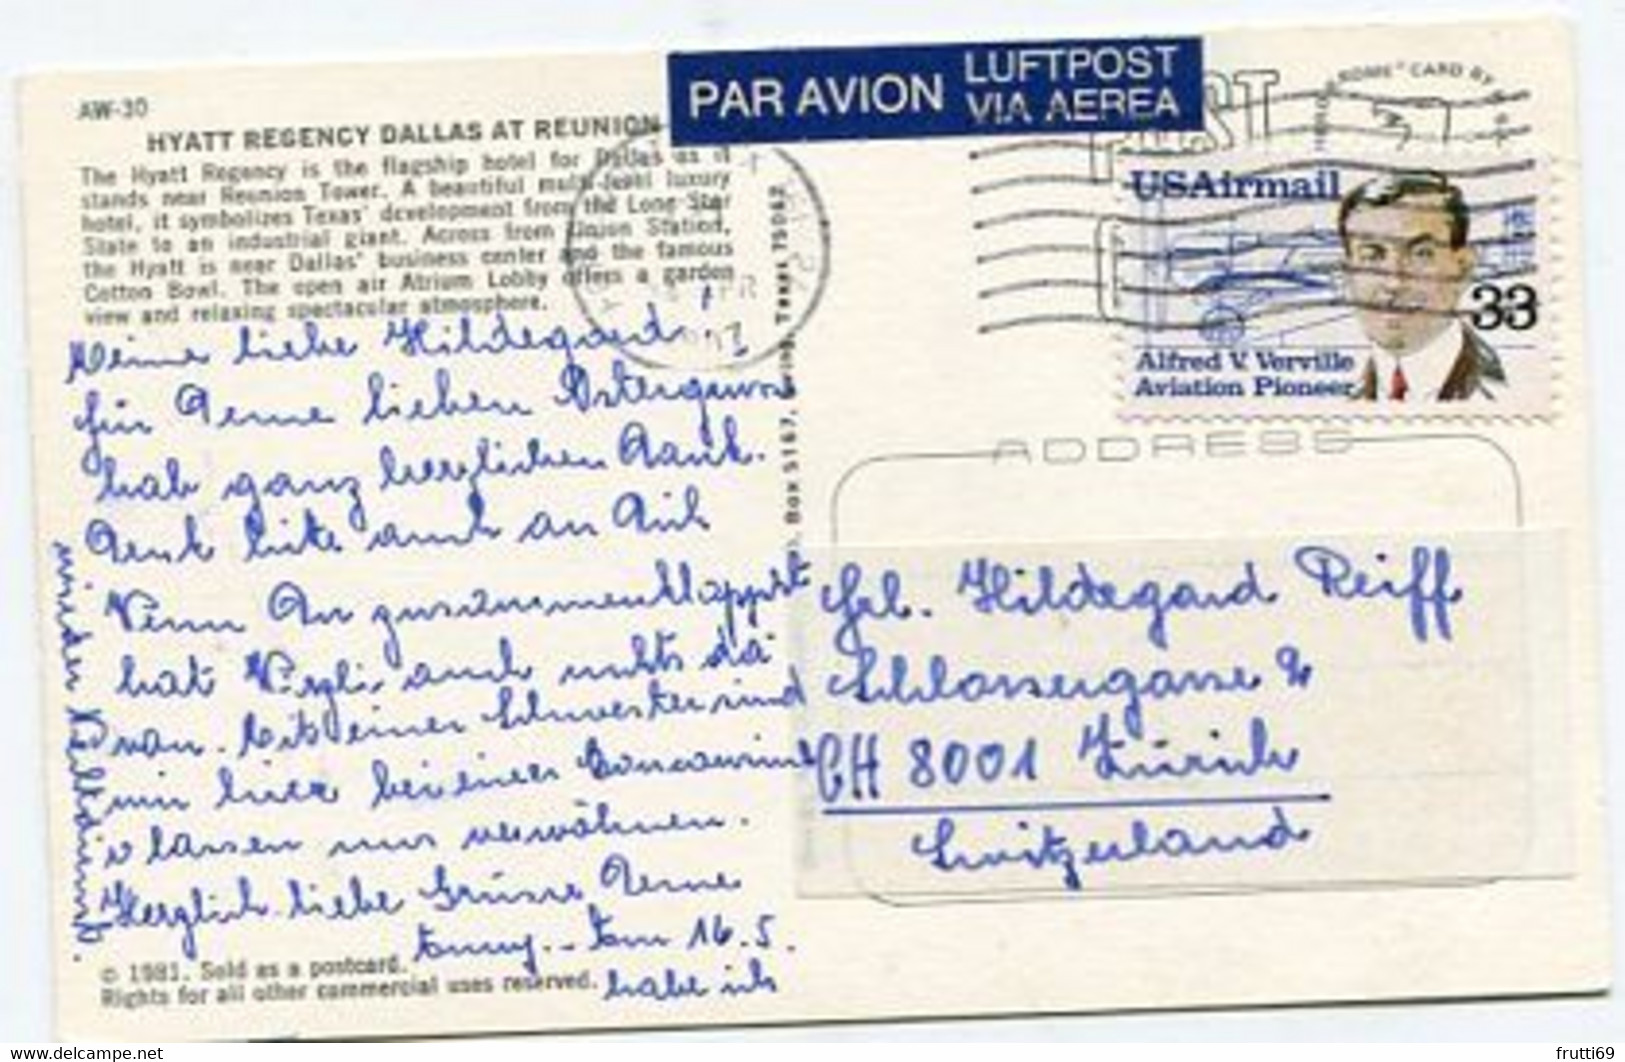 AW-30
HYATT REGENCY DALLAS AT REUNION
The Hyatt Regency is the flagship hotel for Dallas as it
stands near Reunion Tower. A beautiful multi-level luxury
hotel, it symbolizes Texas' development from the Lone Star
State to an industrial giant. Across from Union Station,
the Hyatt is near Dallas' business center and the famous
Cotton Bowl. The open air Atrium Lobby offers a garden
view and relaxing spectacular atmosphere.
Meine liebe Hildegard,
für Deine lieben
hab ganz herzlichen Dank.
Denk bitte auch an Dich
Wenn Du zusammenklappst
hat auch nichts da
von. Mit einer Schwester sind
wir hier bei einer
u lassen uns verwöhnen.
Herzlich liebe Grüsse Deine
16.5.
habe ich
wieder
© 1981. Sold as a postcard.
Rights for all other commercial uses reserved.
Box 5167, Irving, Texas 75062
PAR AVION LUFTPOST
VIA AEREA
POST
CARD BY
USAirmail
33
Alfred V. Verville
Aviation Pioneer
ADDRESS
Hildegard Reiff
Schlossergasse 2
CH 8001 Zürich
Switzerland
delcampe.net
frutti69